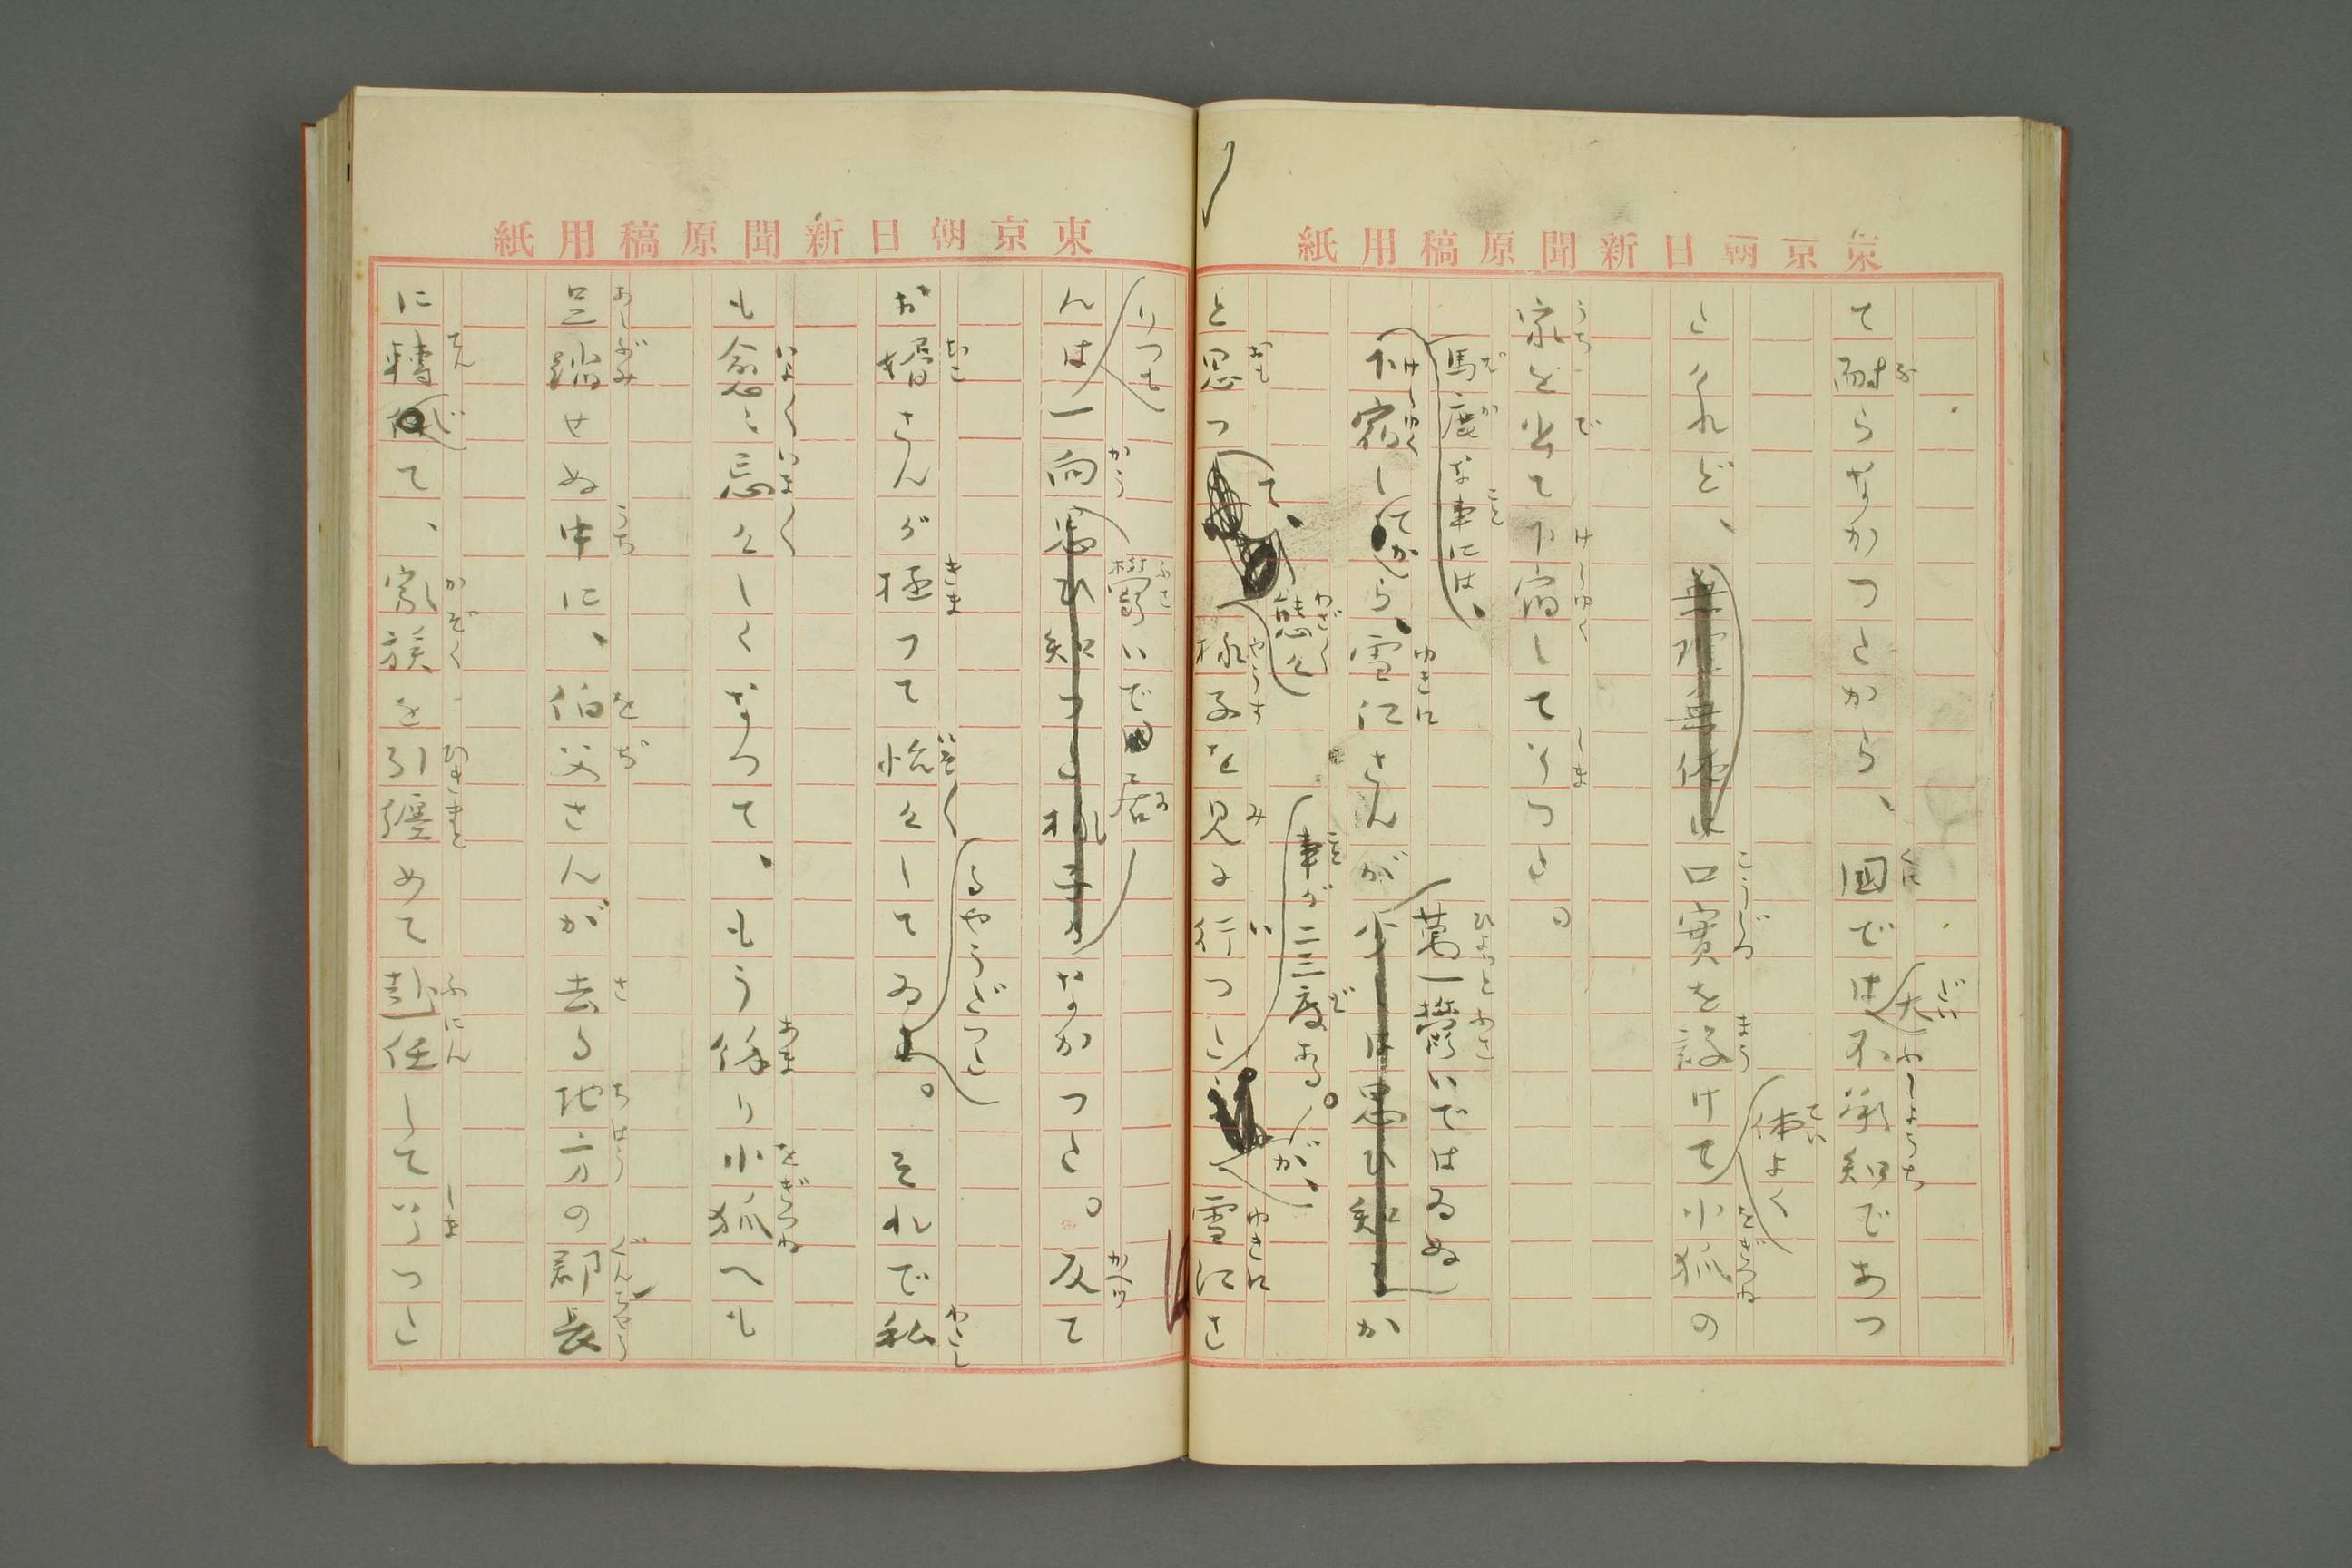 東京朝日新聞原稿用紙
大
て耐らなかつたから、国では不承知であつ
体よく
たけれど、口實を設けて小狐の
家を出て下宿して了つた。
馬鹿な事には、万一鬱いではゐぬ
下宿してから、雪江さんが か
態々 事が二三度ある。が、
と思つて、様子を見に行つた 雪江さ
東京朝日新聞原稿用紙
いつも 鬱いで居
んは一向 なかつた。反て
るやうだつた
お婿さんが極つて怡々してゐ。それで私
も愈々忌々しくなつて、もう餘り小狐へも
足踏せぬ中に、伯父さんが去る地方の郡長
に轉じて、家族を引纏めて赴任して了つた